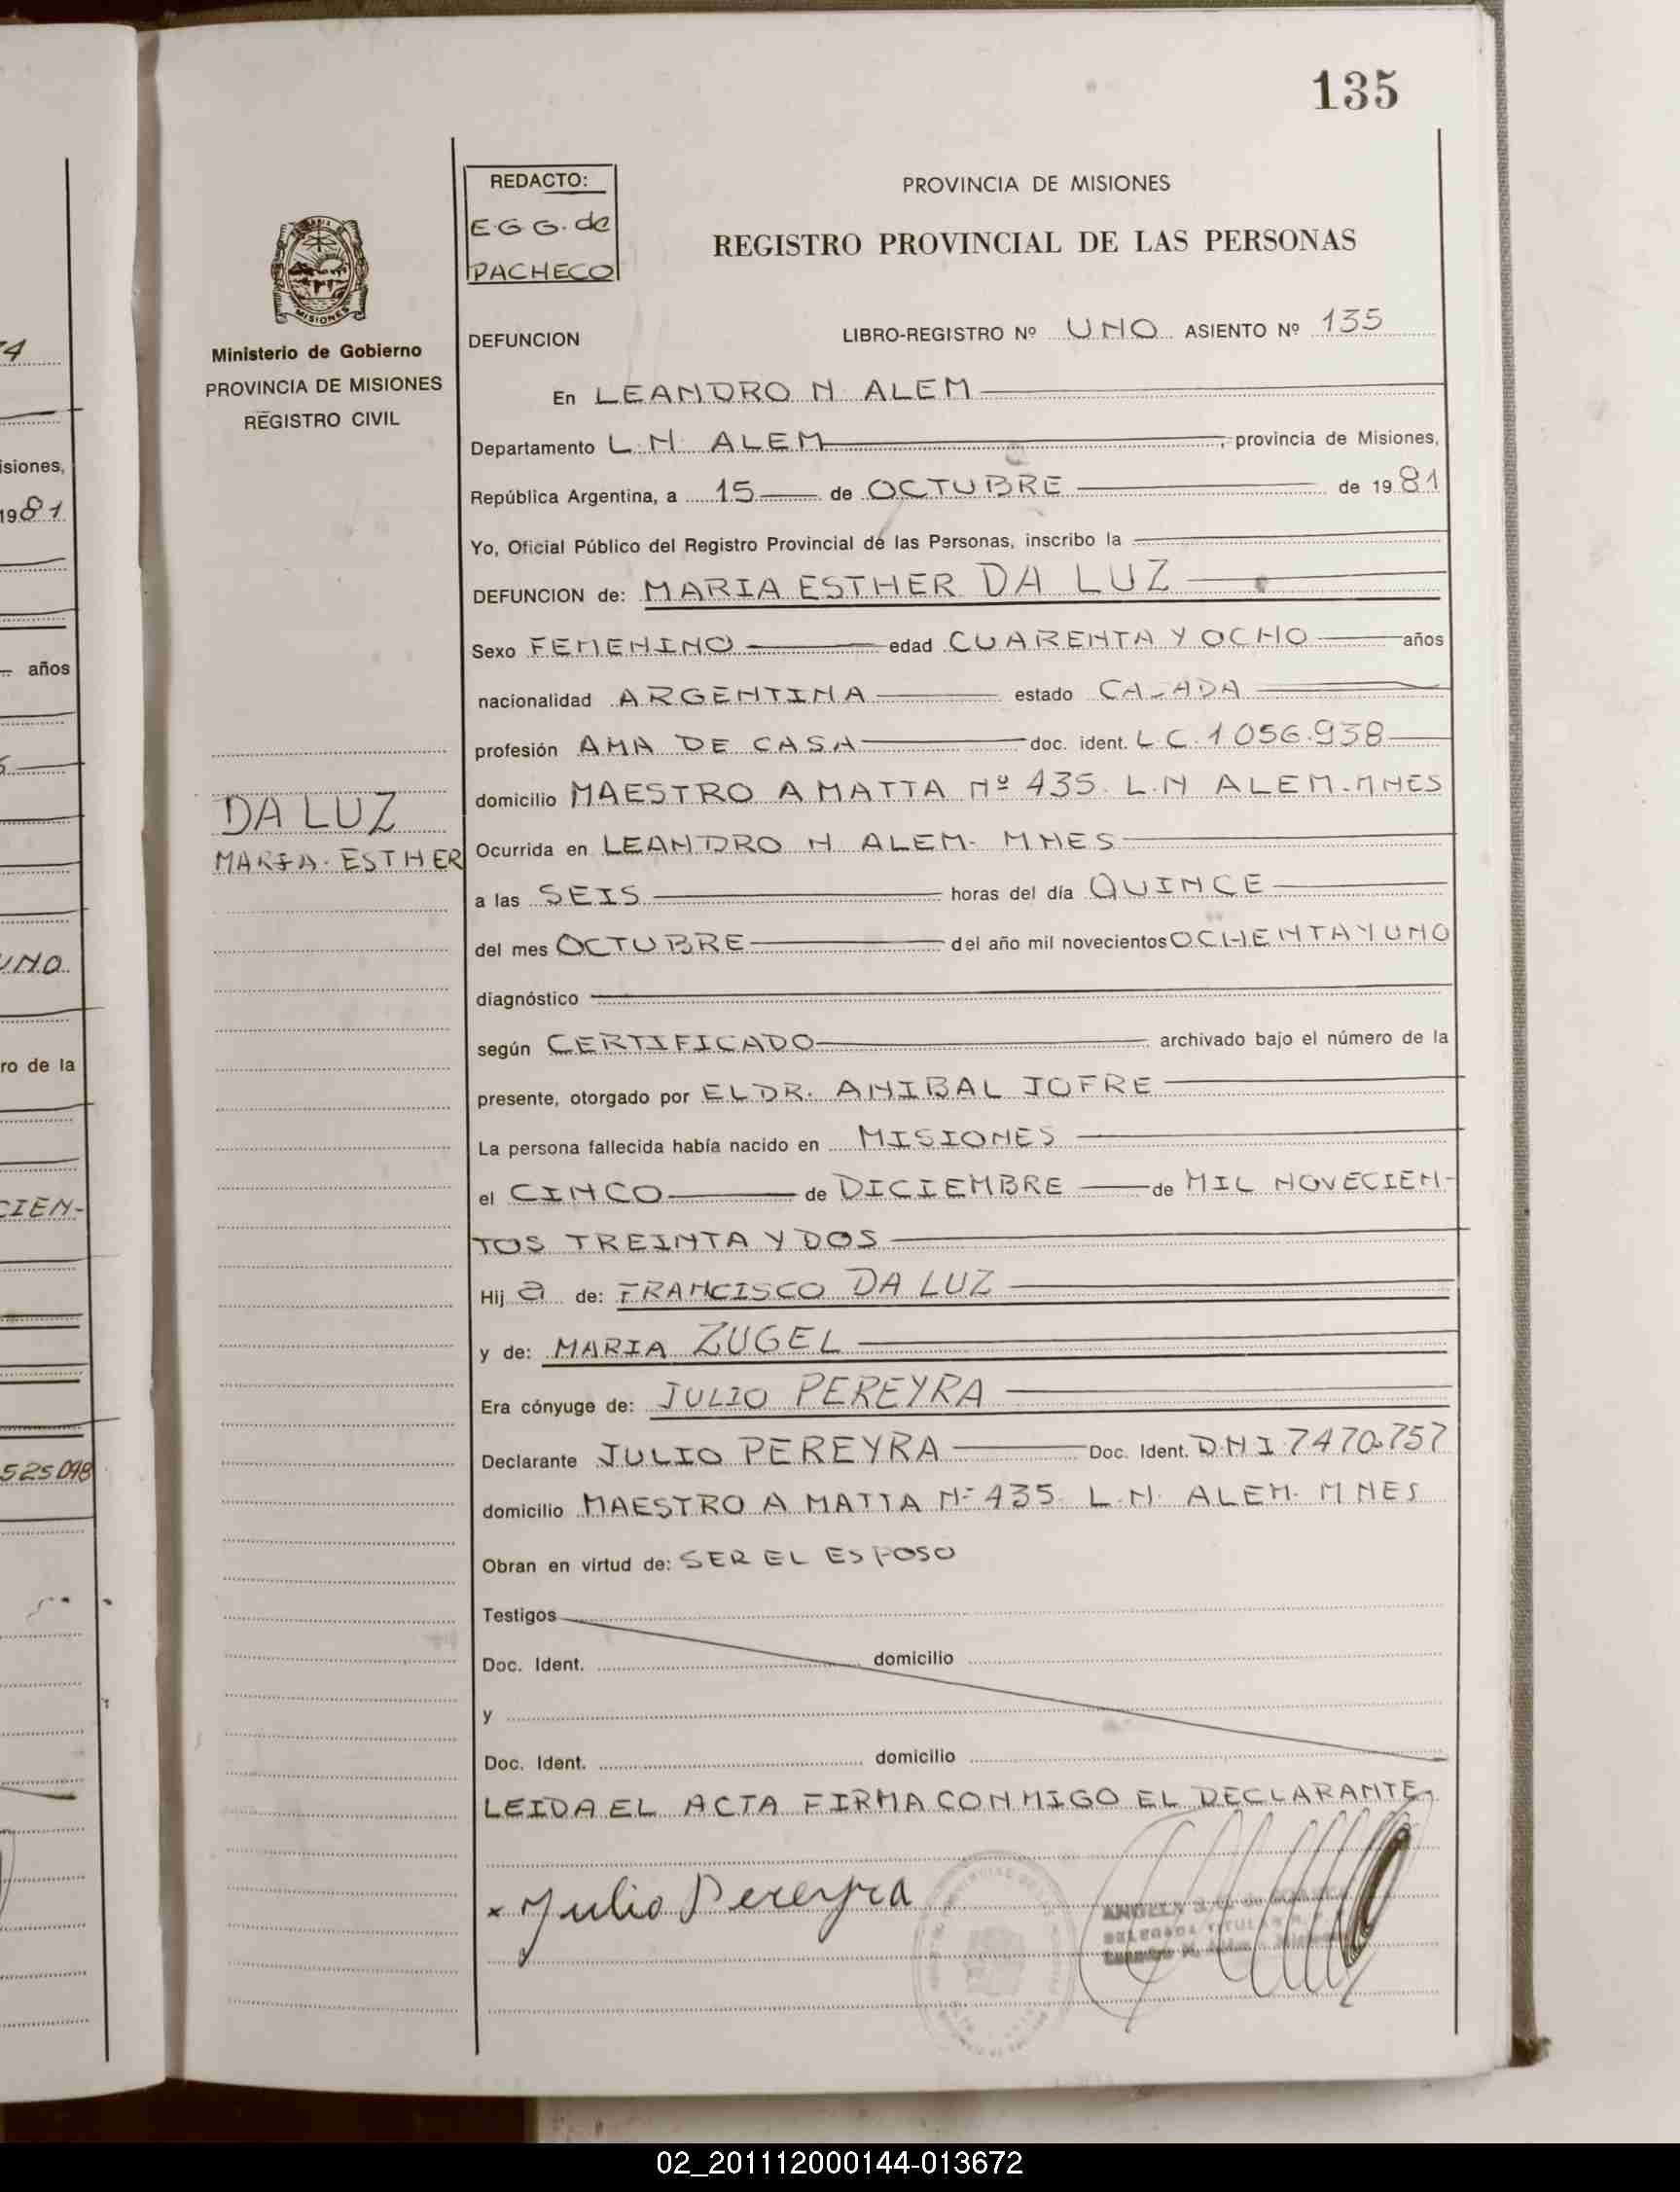 135
REDACTO:
E.G G. de
PACHECO
PROVINCIA DE MISIONES
REGISTRO PROVINCIAL DE LAS PERSONAS
MISIONES
Ministerio de Gobierno
PROVINCIA DE MISIONES
REGISTRO CIVIL
DEFUNCION LIBRO-REGISTRO Nº UNO ASIENTO Nº 135
En LEANDRO N. ALEM
Departamento L.N. ALEM, provincia de Misiones,
República Argentina, a 15 de OCTUBRE de 1981
Yo, Oficial Público del Registro Provincial de las Personas, inscribo la
DEFUNCION de: MARIA ESTHER DA LUZ
Sexo FEMENINO edad CUARENTA Y OCHO años
nacionalidad ARGENTINA estado CASADA
profesión AMA DE CASA doc. ident. L.C. 1056.938
domicilio MAESTRO A MATTA Nº 435. L.N ALEM. MNES
DA LUZ
MARIA. ESTHER
Ocurrida en LEANDRO N. ALEM. MNES
a las SEIS horas del día QUINCE
del mes OCTUBRE del año mil novecientos OCHENTA Y UNO
diagnóstico
según CERTIFICADO archivado bajo el número de la
presente, otorgado por EL DR. ANIBAL JOFRE
La persona fallecida había nacido en MISIONES
el CINCO de DICIEMBRE de MIL NOVECIEN-
TOS TREINTA Y DOS
Hij a de: FRANCISCO DA LUZ
y de: MARIA ZUGEL
Era cónyuge de: JULIO PEREYRA
Declarante JULIO PEREYRA Doc. Ident. D.N I 7470.757
domicilio MAESTRO A MATTA Nº 435. L.N. ALEM. MNES
Obran en virtud de: SER EL ESPOSO
Testigos
Doc. Ident. domicilio
y
Doc. Ident. domicilio
LEIDA EL ACTA FIRMA CONMIGO EL DECLARANTE.
x Julio Pereyra
4
isiones,
1981
años
UNO
ro de la
CIEN-
525098
02_201112000144-013672